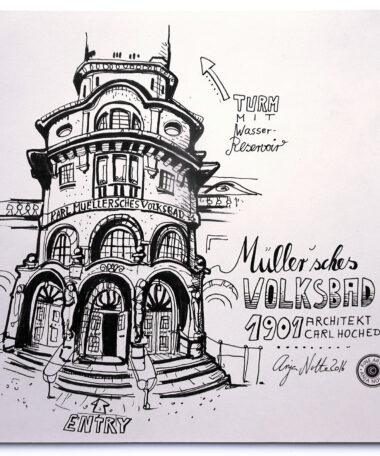 TURM
MIT
Wasser-
Reservoir
KARL MUELLERSCHES VOLKSBAD
Müller'sches
VOLKSBAD
1901 ARCHITEKT
CARL HOCHED
Anja Nolte 2016
ENTRY